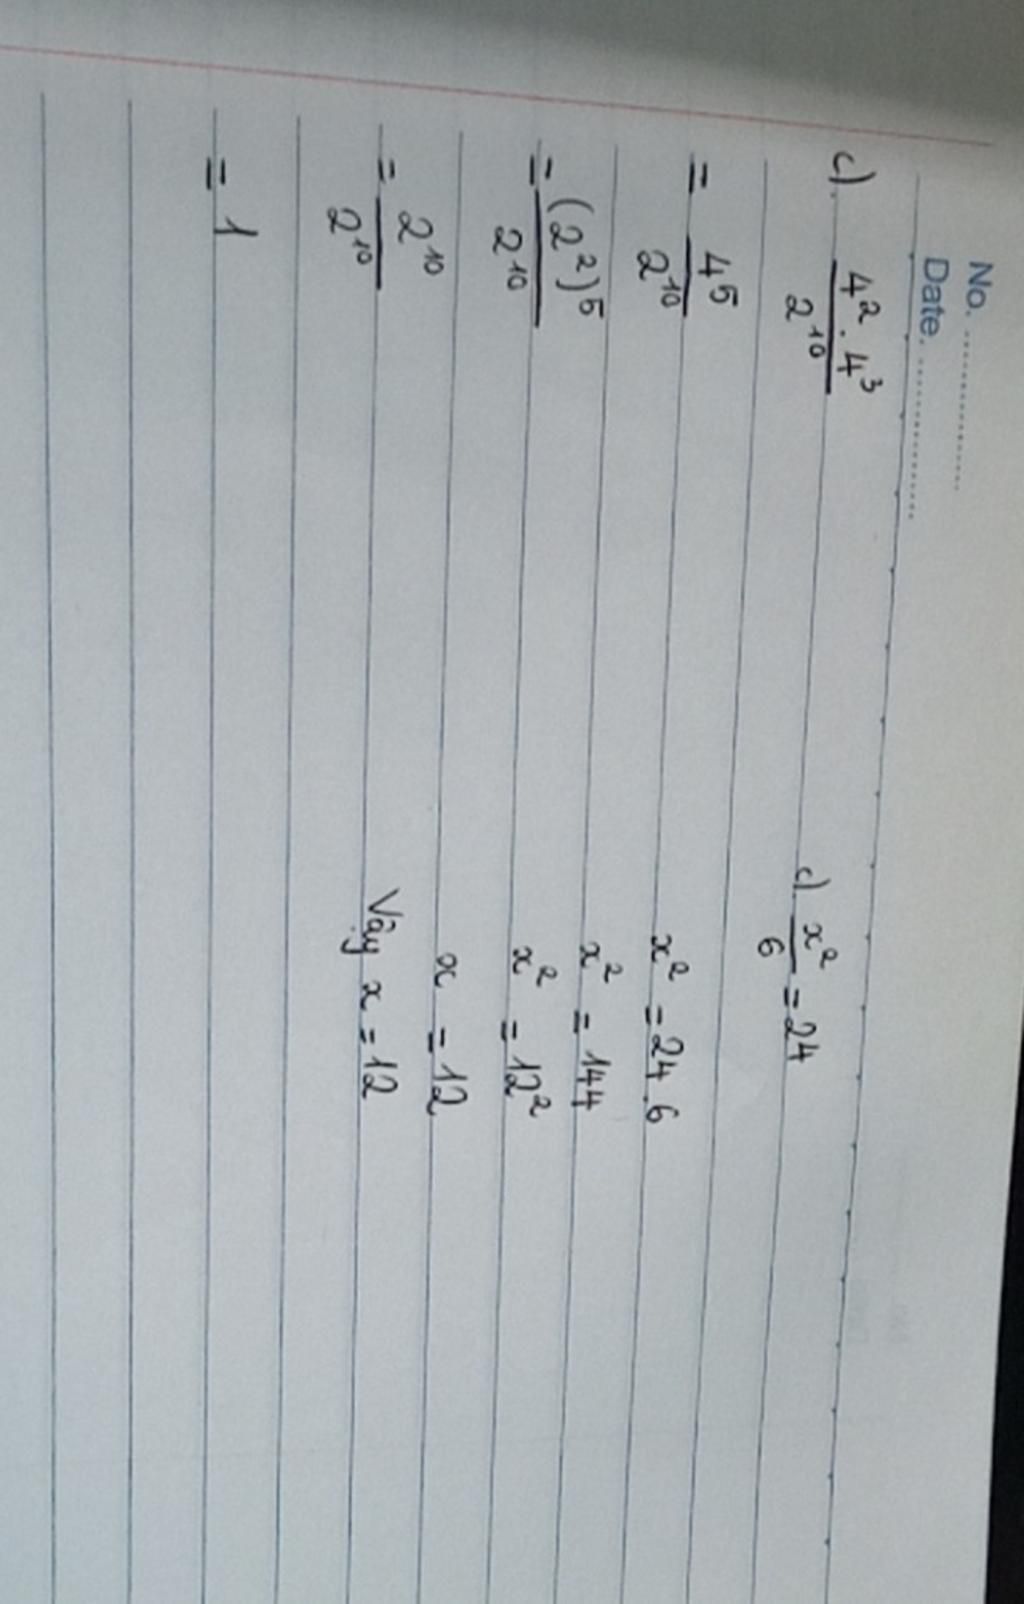 No. ....................
Date. ....................
c). 4² . 4³ / 2¹⁰
= 4⁵ / 2¹⁰
= (2²)⁵ / 2¹⁰
= 2¹⁰ / 2¹⁰
= 1
c). x² / 6 = 24
x² = 24 . 6
x² = 144
x² = 12²
x = 12
Vậy x = 12